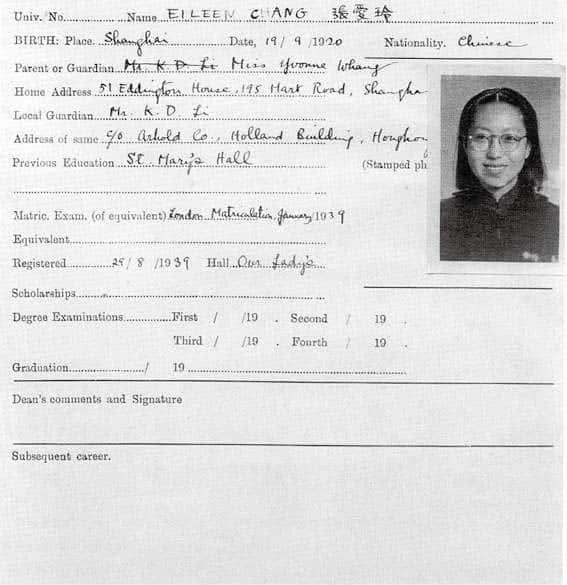 Univ. No. Name EILEEN CHANG 張愛玲
BIRTH: Place. Shanghai Date, 19/ 9 /1920 Nationality. Chinese
Parent or Guardian Mr. K. D. Li Miss Yvonne Whang
Home Address 51 Eddington House, 195 Hart Road, Shangha
Local Guardian Mr. K. D. Li
Address of same c/o Arnold Co., Holland Building, Hongkon
Previous Education St. Mary's Hall (Stamped ph
Matric. Exam. (of equivalent) London Matriculation, January, 1939
Equivalent
Registered 29/ 8 /1939 Hall Our Lady's
Scholarships
Degree Examinations First / /19 . Second / 19 .
Third / /19 . Fourth / 19 .
Graduation / 19
Dean's comments and Signature
Subsequent career.